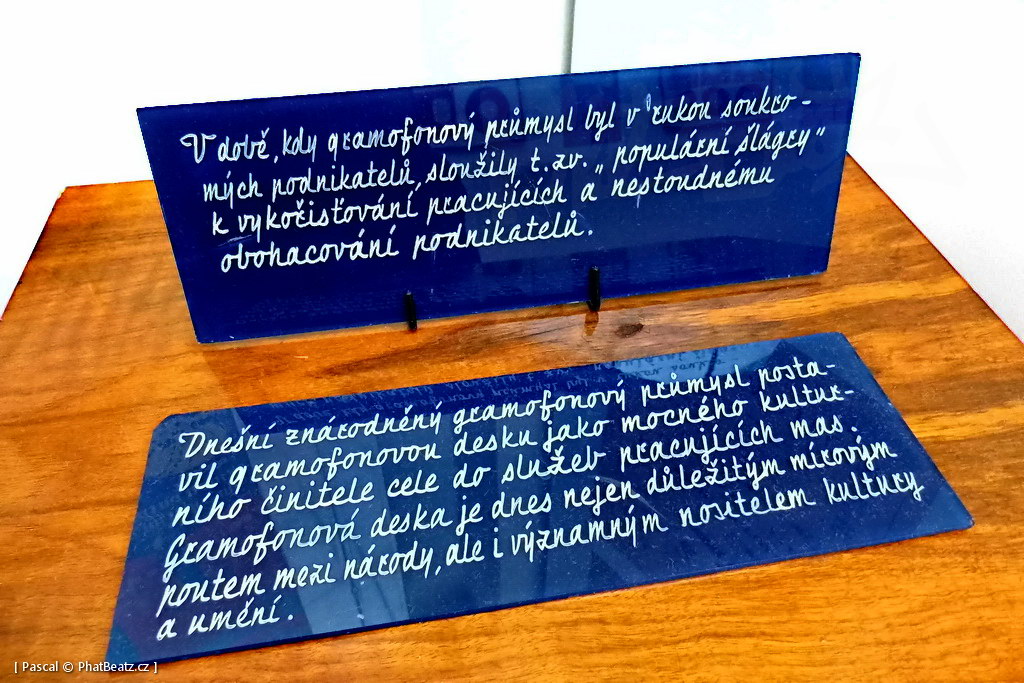 V době, kdy gramofonový průmysl byl v rukou soukro-
mých podnikatelů, sloužily t.zv. „populární šlágry“
k vykořisťování pracujících a nestoudnému
obohacování podnikatelů.
Dnešní znárodněný gramofonový průmysl posta-
vil gramofonovou desku jako mocného kultur-
ního činitele cele do služeb pracujících mas.
Gramofonová deska je dnes nejen důležitým mírovým
poutem mezi národy, ale i významným nositelem kultury
a umění.
[ Pascal © PhatBeatz.cz ]